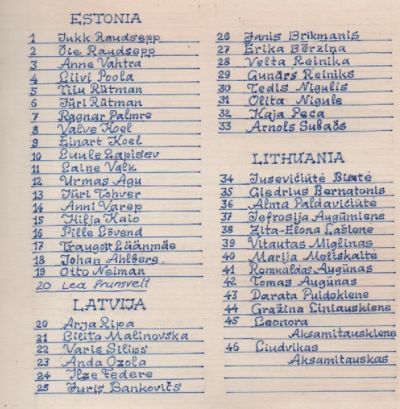 ESTONIA
1 Jukk Raudsepp
2 Õie Raudsepp
3 Anne Vahtra
4 Liivi Poola
5 Tiiu Rütman
6 Jüri Rütman
7 Ragnar Palmre
8 Valve Koel
9 Einart Koel
10 Luule Lapisev
11 Laine Valk
12 Urmas Agu
13 Jüri Tohver
14 Anni Varep
15 Hilja Kaio
16 Pille Lõvend
17 Traugott Läänmäe
18 Johan Ahlberg
19 Otto Neiman
20 Lea Prunsvelt
LATVIJA
20 Arja Ripa
21 Lilita Malinovska
22 Varis Siliņš
23 Anda Ozola
24 Ilze Federe
25 Juris Bankovičs
26 Janis Brikmanis
27 Ērika Bērziņa
28 Velta Reinika
29 Gunārs Reiniks
30 Tedis Nigulis
31 Olita Nigule
32 Kaja Peca
33 Arnols Subačs
LITHUANIA
34 Jusevičiūtė Birutė
35 Giedrius Bernatonis
36 Alma Paldavičiūtė
37 Jefrosija Augūniene
38 Zita-Elona Lašiene
39 Vitautas Miglinas
40 Marija Moliskaitė
41 Romualdas Augūnas
42 Tomas Augūnas
43 Darata Puidokiene
44 Gražina Liniauskiene
45 Leonora
Aksamitauskiene
46 Liudvikas
Aksamitauskas